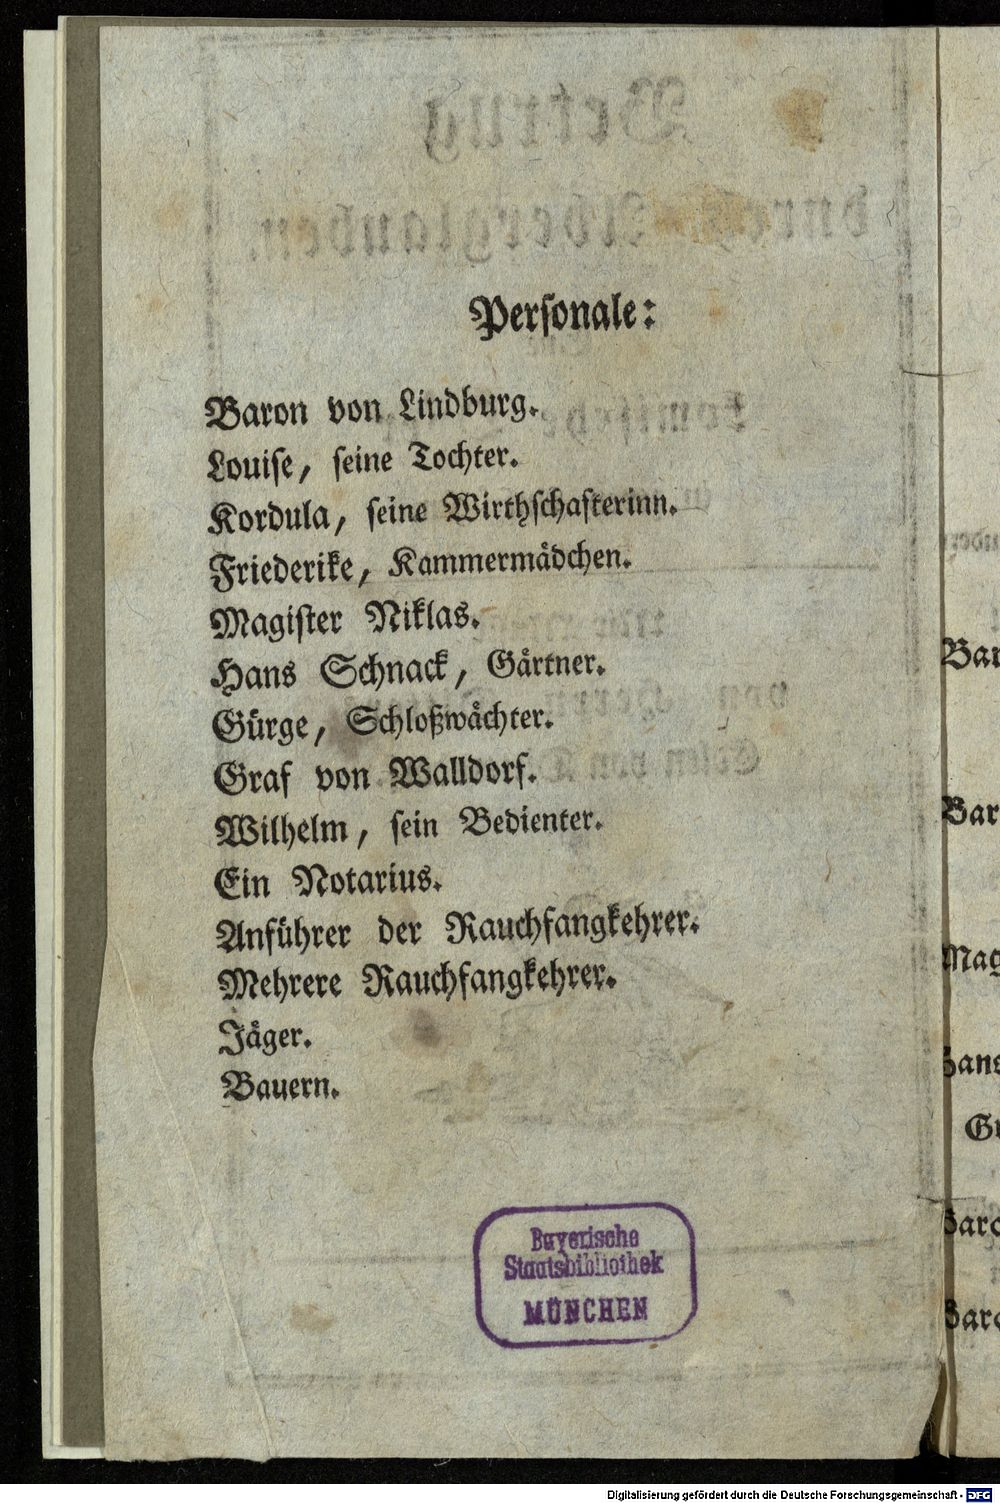 Personale:
Baron von Lindburg.
Louise, seine Tochter.
Kordula, seine Wirthschafterinn.
Friederike, Kammermädchen.
Magister Niklas.
Hans Schnack, Gärtner.
Gürge, Schloßwächter.
Graf von Walldorf.
Wilhelm, sein Bedienter.
Ein Notarius.
Anführer der Rauchfangkehrer.
Mehrere Rauchfangkehrer.
Jäger.
Bauern.
Bayerische
Staatsbibliothek
MÜNCHEN
Bar
Mag
Digitalisierung gefördert durch die Deutsche Forschungsgemeinschaft - DFG